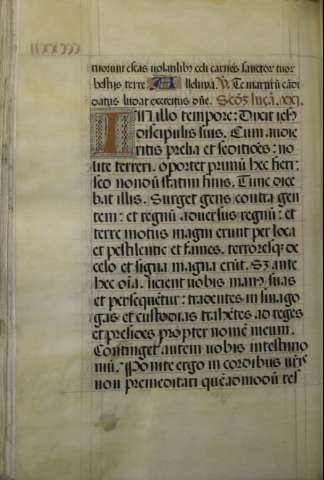 CCXXII
tuorum escas volatilibz celi carnes sanctor tuor
bestiis terre Alleluya. V. Te martirũ cãdi
datus laudat exercitus dñe. Scdz lucã. xxi.
IN illo tempore: Dixit iesꝰ
discipulis suis. Cum audie
ritis prelia et seditiões: no
lite terreri. oportet primũ hec fieri:
sed nondũ statim finis. Tunc dice
bat illis. Surget gens contra gen
tem: et regnũ adversus regnũ: et
terre motus magni erunt per loca
et pestilentie et fames. terroresqz de
celo et signa magna erũt. Sz ante
hec oĩa. iicient vobis manꝰ suas
et persequẽtur: tradentes in sinago
gas et custodias trahẽtes ad reges
et presides propter nomẽ meum.
Continget autem vobis in testimo
niũ. Ponite ergo in cordibus vrĩs
non premeditari quẽadmodũ res